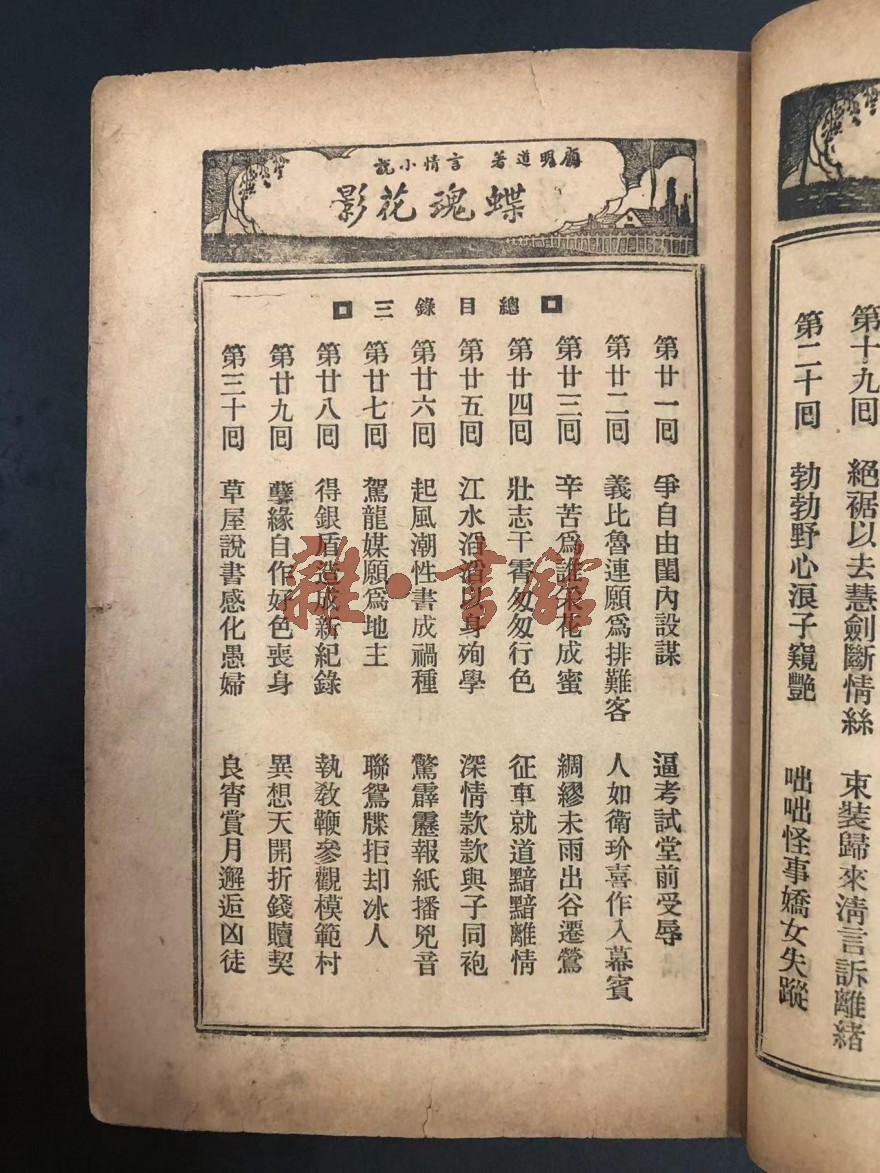 第十九囘 絕裾以去慧劍斷情絲 束裝歸來淸言訴離緒
第二十囘 勃勃野心浪子窺艷 咄咄怪事嬌女失蹤
顧明道著 言情小說
蝶魂花影
總目錄三
第廿一囘 爭自由閨內設謀 逼考試堂前受辱
第廿二囘 義比魯連願爲排難客 人如衛玠喜作入幕賓
第廿三囘 辛苦爲誰采花成蜜 綢繆未雨出谷遷鶯
第廿四囘 壯志干霄匆匆行色 征車就道黯黯離情
第廿五囘 江水滔滔以身殉學 深情款款與子同袍
第廿六囘 起風潮性書成禍種 驚霹靂報紙播兇音
第廿七囘 駕龍媒願爲地主 聯鴛牒拒却冰人
第廿八囘 得銀盾造成新紀錄 執敎鞭參觀模範村
第廿九囘 孽緣自作好色喪身 異想天開折錢贖契
第三十囘 草屋說書感化愚婦 良宵賞月邂逅凶徒
雜·書館